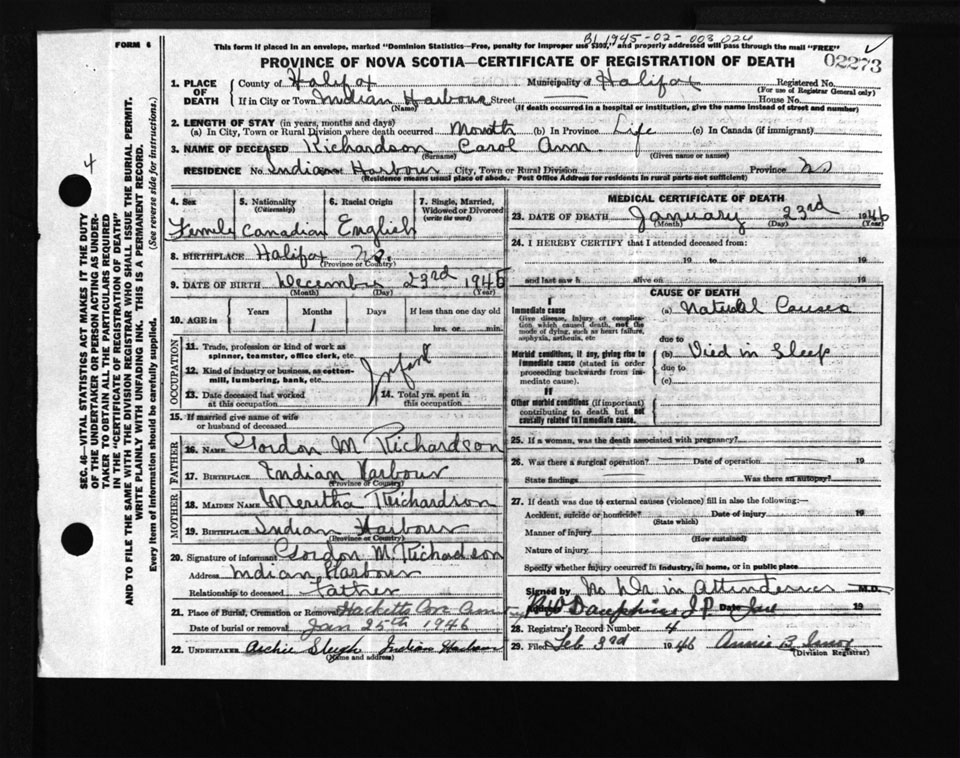 BL 1945-02-003024
FORM 6
This form if placed in an envelope, marked "Dominion Statistics—Free, penalty for improper use $300," and properly addressed will pass through the mail "FREE"
PROVINCE OF NOVA SCOTIA—CERTIFICATE OF REGISTRATION OF DEATH
02273
1. PLACE OF DEATH
County of Halifax Municipality of Halifax Registered No.
(For use of Registrar General only)
If in City or Town Indian Harbour Street House No.
(Name) (If death occurred in a hospital or institution, give the name instead of street and number)
2. LENGTH OF STAY (in years, months and days)
(a) In City, Town or Rural Division where death occurred Month (b) In Province Life (c) In Canada (if immigrant)
3. NAME OF DECEASED Richardson Carol Ann.
(Surname) (Given name or names)
RESIDENCE No. Indian Harbour City, Town or Rural Division Province NS
(Residence means usual place of abode. Post Office Address for residents in rural parts not sufficient)
4. Sex Female
5. Nationality (Citizenship) Canadian
6. Racial Origin English
7. Single, Married, Widowed or Divorced (write the word)
8. BIRTHPLACE Halifax NS.
(Province or Country)
9. DATE OF BIRTH December 23rd 1945
(Month) (Day) (Year)
10. AGE in Years Months Days If less than one day old
1 hrs. or min.
OCCUPATION
11. Trade, profession or kind of work as spinner, teamster, office clerk, etc.
12. Kind of industry or business, as cotton-mill, lumbering, bank, etc.
Infant
13. Date deceased last worked at this occupation
14. Total yrs. spent in this occupation
15. If married give name of wife or husband of deceased
FATHER
16. NAME Gordon M Richardson
17. BIRTHPLACE Indian Harbour
(Province or Country)
MOTHER
18. MAIDEN NAME Richardson
19. BIRTHPLACE Indian Harbour
(Province or Country)
20. Signature of informant Gordon M. Richardson
Address Indian Harbour
Relationship to deceased Father
21. Place of Burial, Cremation or Removal
Date of burial or removal Jan 25th 1946
22. UNDERTAKER Archie Indian Harbour
(Name and address)
MEDICAL CERTIFICATE OF DEATH
23. DATE OF DEATH January 23rd 1946
(Month) (Day)
24. I HEREBY CERTIFY that I attended deceased from:
19 to 19
and last saw h alive on 19
CAUSE OF DEATH
I
Immediate cause
Give disease, injury or complication which caused death, not the mode of dying, such as heart failure, asphyxia, asthenia, etc
(a) Natural Causes
due to
Morbid conditions, if any, giving rise to immediate cause (stated in order proceeding backwards from immediate cause).
(b) Died in Sleep
due to
(c)
II
Other morbid conditions (if important) contributing to death but not causally related to immediate cause.
25. If a woman, was the death associated with pregnancy?
26. Was there a surgical operation? Date of operation 19
State findings Was there an autopsy?
27. If death was due to external causes (violence) fill in also the following:—
Accident, suicide or homicide? Date of injury 19
(State which)
Manner of injury
(How sustained)
Nature of injury
Specify whether injury occurred in industry, in home, or in public place
Signed by No Dr. in Attendance M.D.
Dauphinee J.P. Date 19
28. Registrar's Record Number 4
29. Filed Feb 3rd 1946 Annie B.
(Division Registrar)
4
SEC. 46—VITAL STATISTICS ACT MAKES IT THE DUTY
OF THE UNDERTAKER OR PERSON ACTING AS UNDER-
TAKER TO OBTAIN ALL THE PARTICULARS REQUIRED
IN THE "CERTIFICATE OF REGISTRATION OF DEATH"
AND TO FILE THE SAME WITH THE DIVISION REGISTRAR WHO SHALL ISSUE THE BURIAL PERMIT.
WRITE PLAINLY WITH UNFADING INK. THIS IS A PERMANENT RECORD.
Every item of information should be carefully supplied. (See reverse side for instructions.)